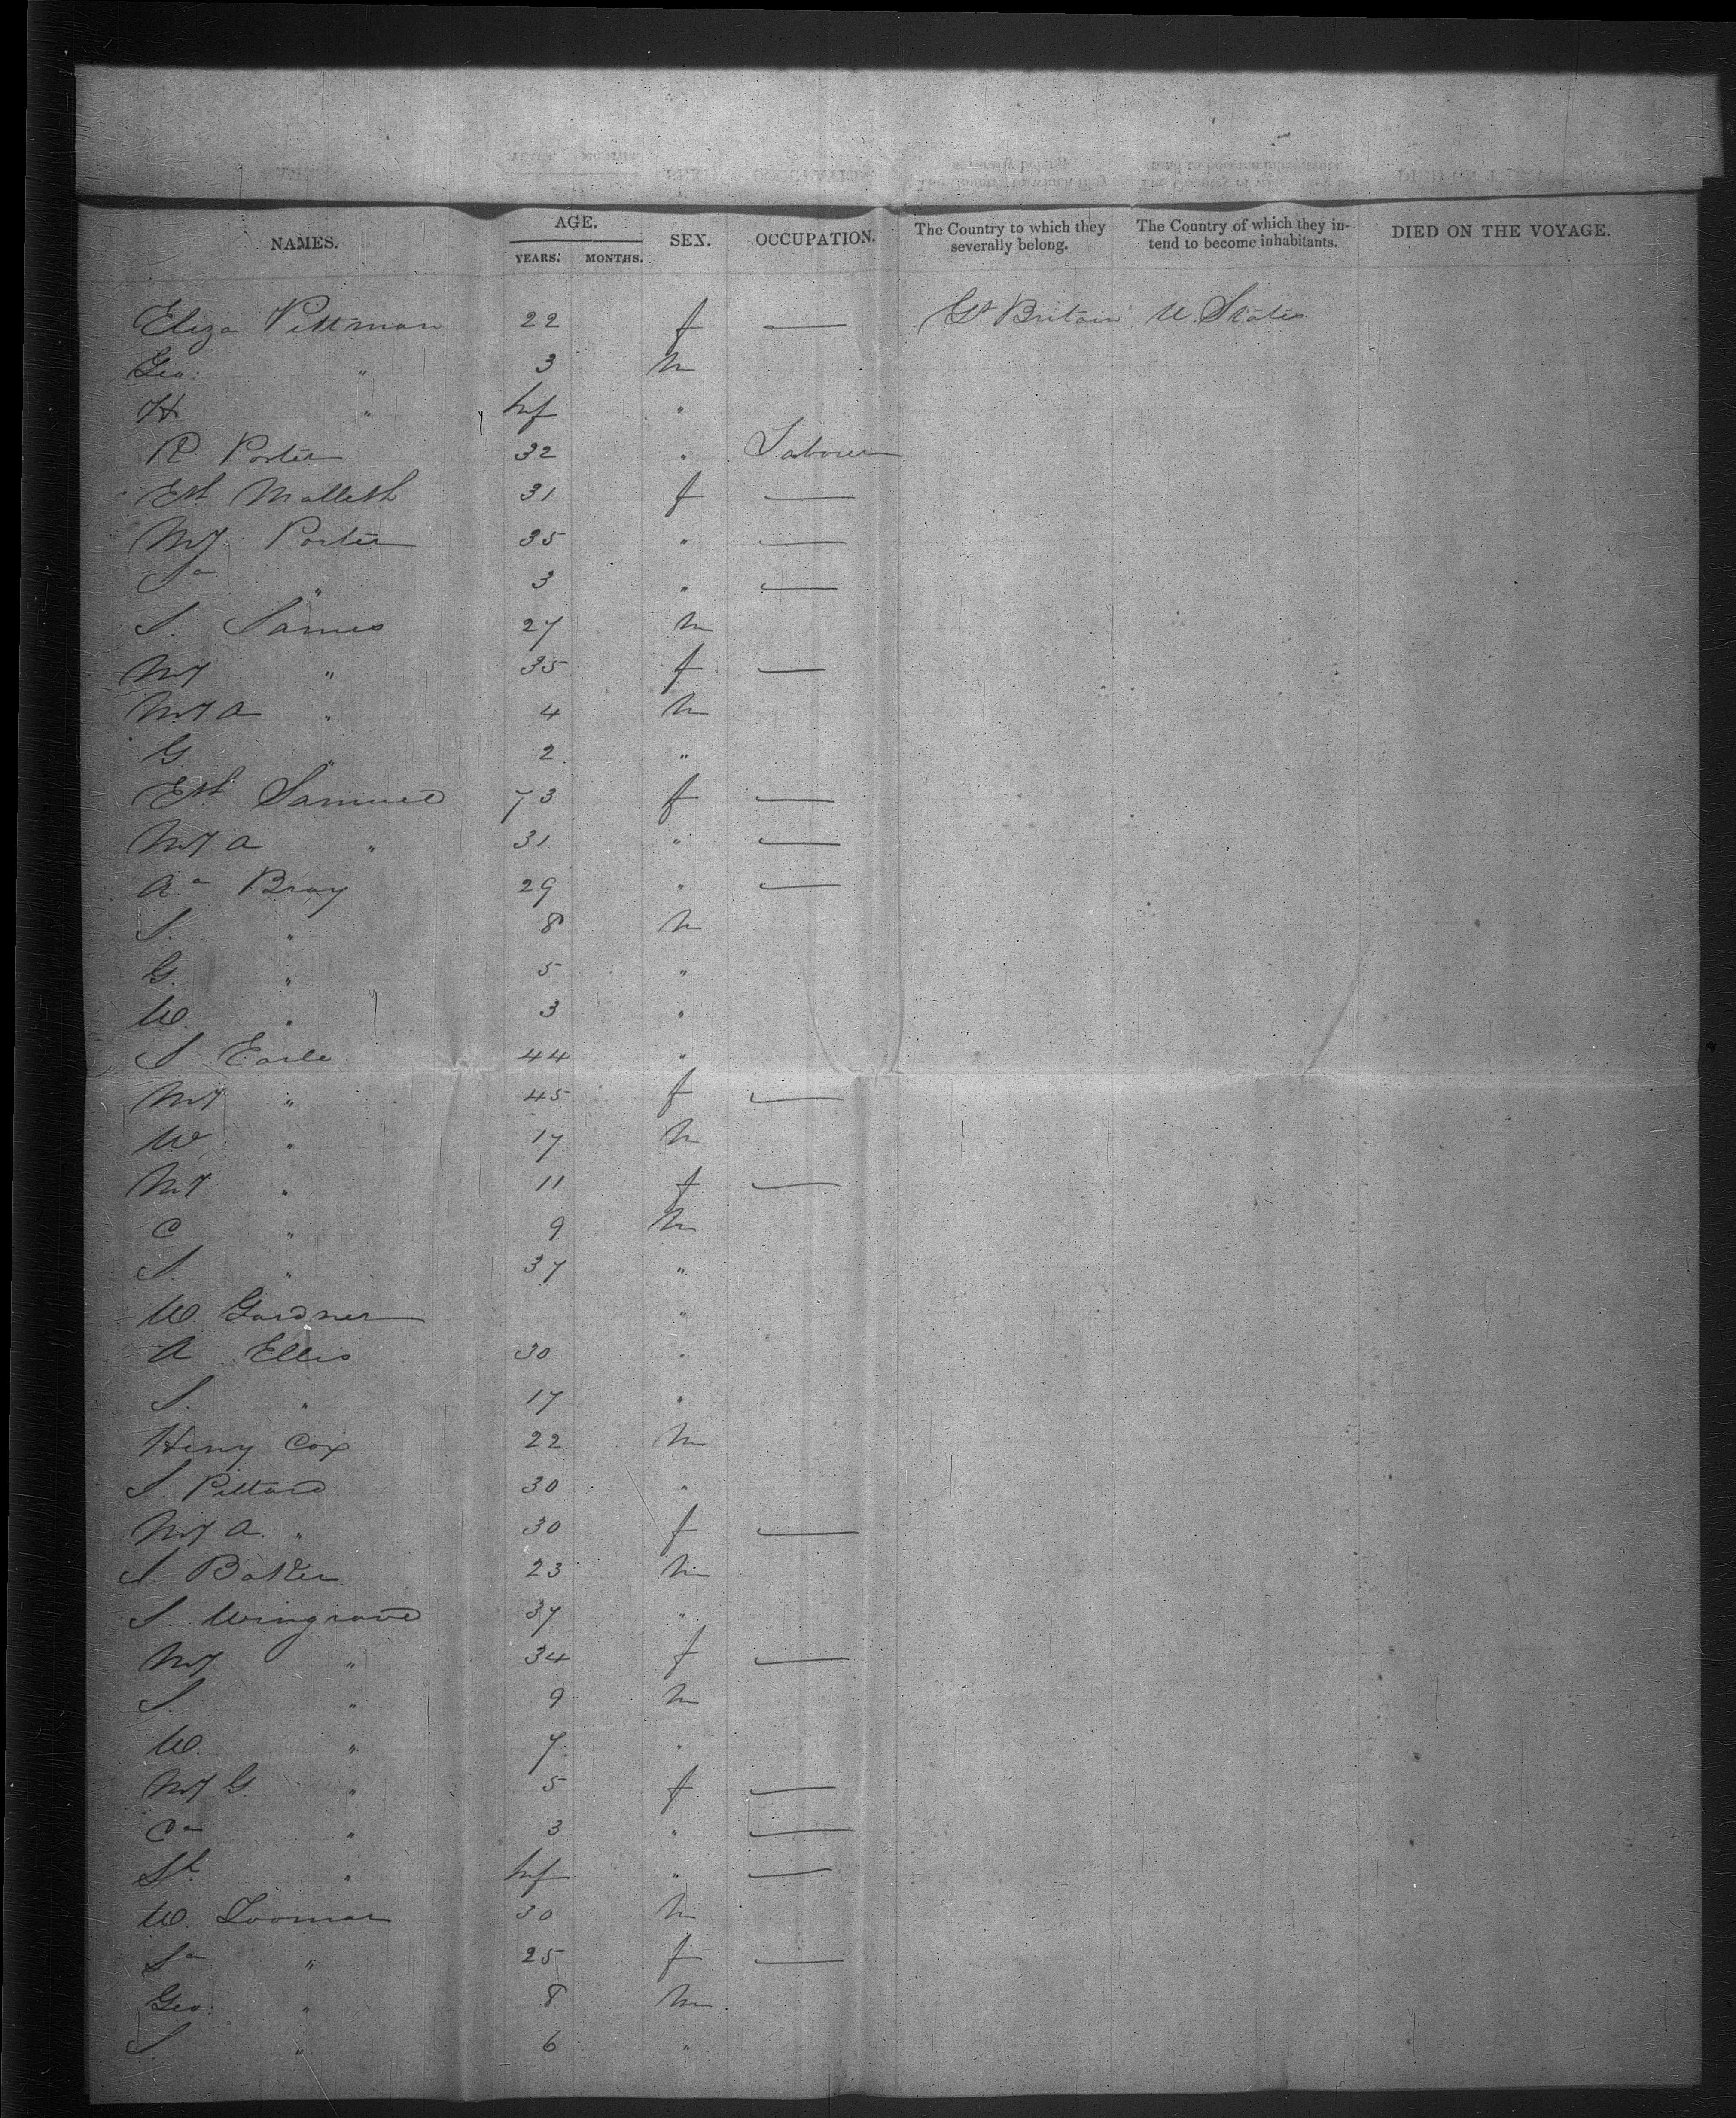 NAMES. AGE. YEARS. MONTHS. SEX. OCCUPATION. The Country to which they severally belong. The Country of which they intend to become inhabitants. DIED ON THE VOYAGE.
Eliza Pittman 22 f — Gt Britain U. States
Geo: " 3 m
H " Inf "
R Porter 32 " Labourer
Eth 31 f —
My Porter 35 " —
Sa " 3 " —
S. James 27 m
My " 35 f —
My A " 4 m
G " 2 "
Eth Samuel 73 f —
My A " 31 " —
Aa Bray 29 " —
S. " 8 m
G. " 5 "
W. " 3 "
S Earle 44 "
My " 45 f —
W " 17 m
My " 11 f —
C " 9 m
S. " 37 "
W. Gardner "
A Ellis 30 "
S. " 17 "
Henry Cox 22 m
S. Pittard 30 "
My A. " 30 f —
S. Baker 23 m
S. Wingrove 37 "
My " 34 f —
S. " 9 m
W. " 7 "
My G. " 5 f —
Ca " 3 " —
Sh " Inf " —
W. Loomar 30 m
Sa " 25 f —
Geo: " 8 m
S. " 6 "